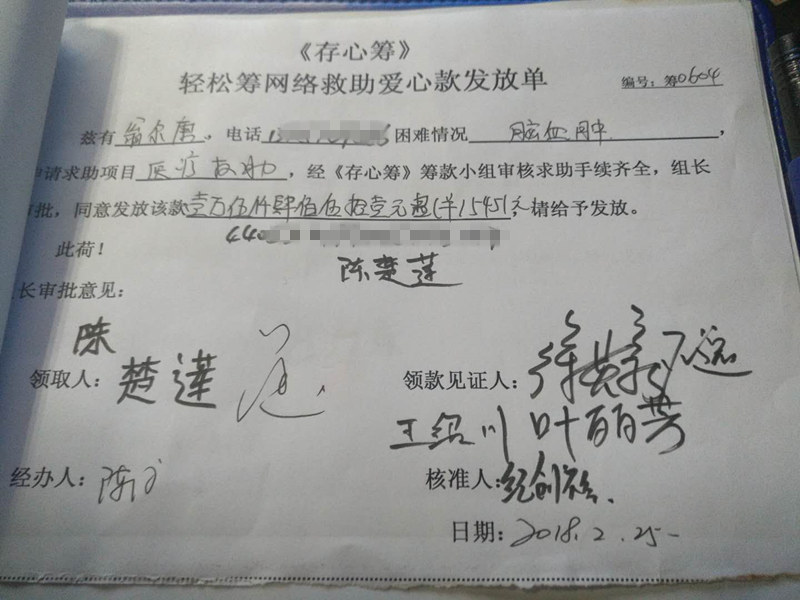 《存心筹》
轻松筹网络救助爱心款发放单
编号：筹0604
兹有翁尔唐，电话 困难情况 脑血肿，
申请求助项目医疗救助，经《存心筹》筹款小组审核求助手续齐全，组长
审批，同意发放该款壹万伍仟肆佰伍拾壹元整(￥15451元，请给予发放。
此荷！
陈楚莲
长审批意见：
领取人：陈楚莲
领款见证人：
王绍川 叶丽芳
经办人：陈
核准人：纪创
日期：2018.2.25